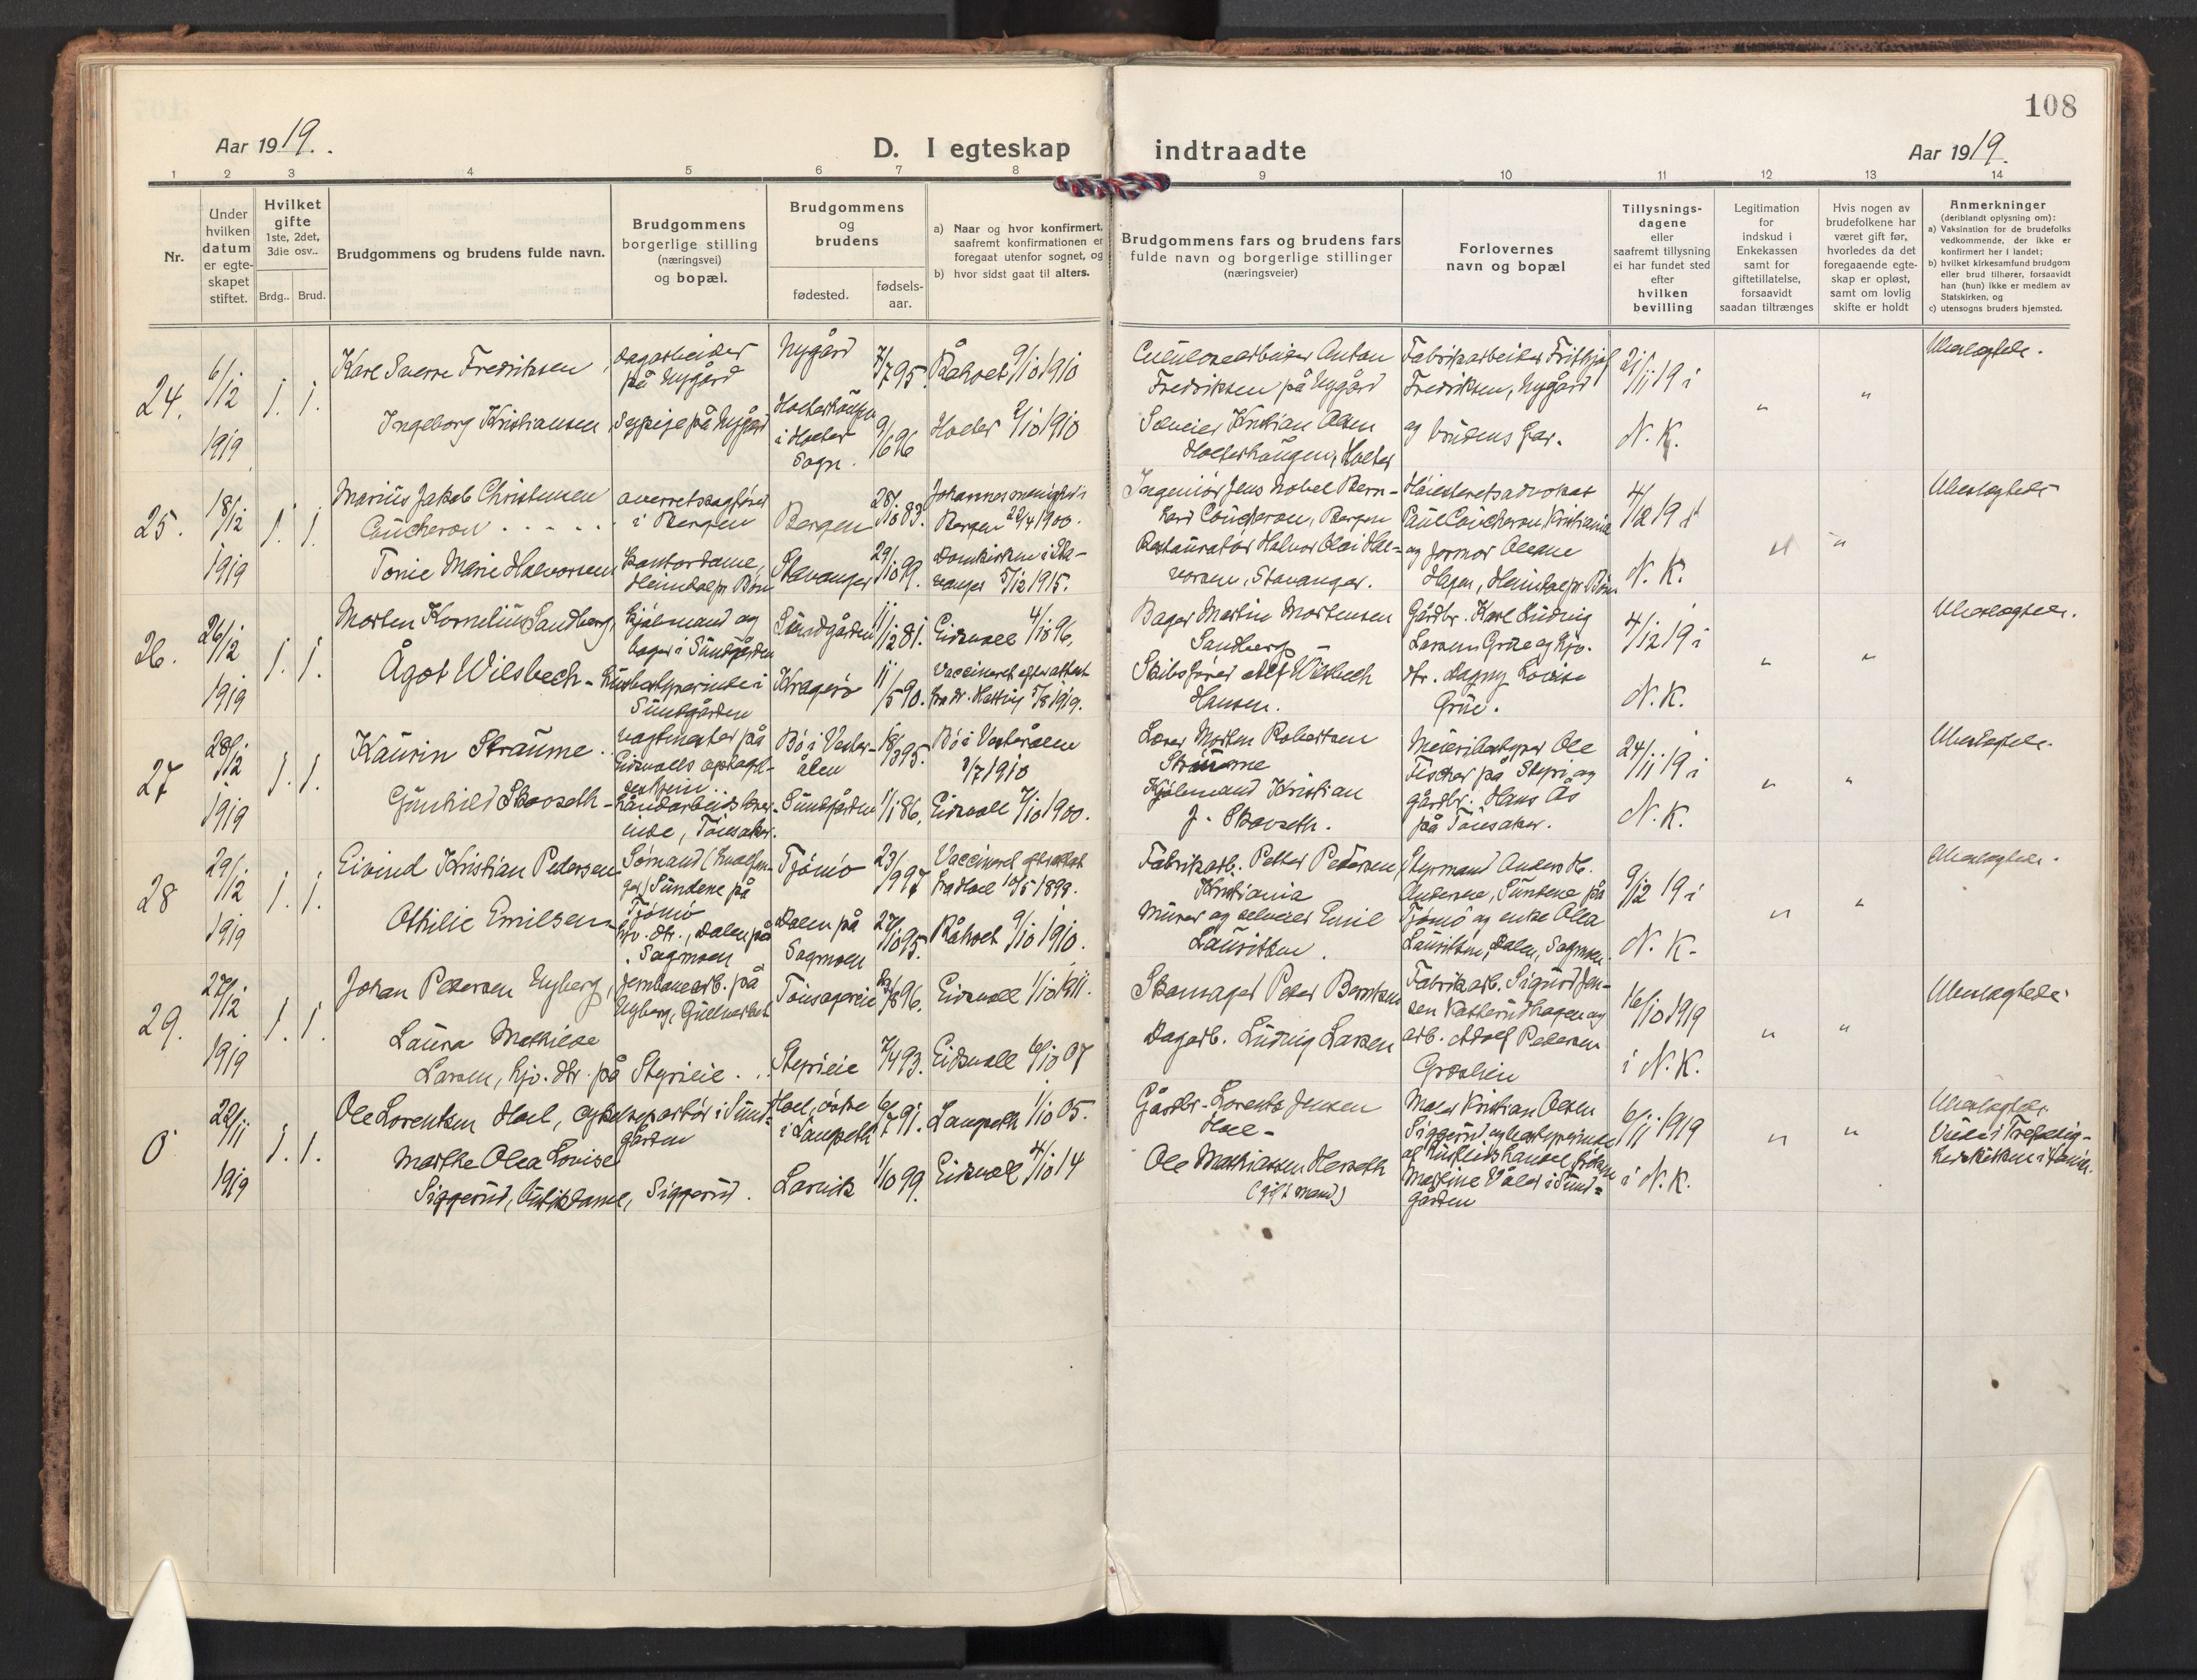 108
Aar 1919.
D. I egteskap indtraadte
Aar 1919.
1 2 3 4 5 6 7 8 9 10 11 12 13 14
Nr.
Under hvilken datum er egteskapet stiftet.
Hvilket gifte 1ste, 2det, 3die osv..
Brdg.. Brud.
Brudgommens og brudens fulde navn.
Brudgommens borgerlige stilling (næringsvei) og bopæl.
Brudgommens og brudens
fødested.
fødsels-aar.
a) Naar og hvor konfirmert, saafremt konfirmationen er foregaat utenfor sognet, og
b) hvor sidst gaat til alters.
Brudgommens fars og brudens fars fulde navn og borgerlige stillinger (næringsveier)
Forlovernes navn og bopæl
Tillysnings-dagene eller saafremt tillysning ei har fundet sted efter hvilken bevilling
Legitimation for indskud i Enkekassen samt for giftetillatelse, forsaavidt saadan tiltrænges
Hvis nogen av brudefolkene har været gift før, hvorledes da det foregaaende egteskap er opløst, samt om lovlig skifte er holdt
Anmerkninger (deriblandt oplysning om):
a) Vaksination for de brudefolks vedkommende, der ikke er konfirmert her i landet;
b) hvilket kirkesamfund brudgom eller brud tilhører, forsaavidt han (hun) ikke er medlem av Statskirken, og
c) utensogns bruders hjemsted.
24. 6/12 1919 1. 1.
Karl Sverre Fredriksen, dagarbeider på Nygård
Nygård 7/7 95. Råholt 9/10 1910
Anton Fredriksen på Nygård
Fabrikarbeider Frithjof Fredriksen, Nygård
21/11 19 i N. K. " "
Ubeslegtede.
Ingeborg Kristiansen, på Nygård
i Holter Sogn. 9/6 96 Holter 2/10 1910
Kristian Olsen Holterhaugen, Holter
og brudens far.
25. 18/12 1919 1. 1.
Marius Jakob Christensen Coucheron
overretssagfører i Bergen
Bergen 28/10 83. Johannes menighed i Bergen 22/4 1900.
Ingeniør Jens Nobel Bernhard Coucheron, Bergen
Høiesteretsadvokat Paul Coucheron, Kristiania
4/12 19 i N. K. " "
Ubeslegtede
Tonie Marie Halvorsen, kontordame, Heimdal pr Bøn
Stavanger 29/10 99. Domkirken i Stavanger 5/12 1915.
Restauratør Halvor Olai Halvorsen, Stavanger.
og Hagen, Heimdal pr Bøn
26. 26/12 1919 1. 1.
Morten Kornelius Sandberg, kjøbmand og bager i Sundgården
Sundgården 11/12 81. Eidsvoll 4/10 96.
Bager Martin Mortensen Sandberg
Gårdbr. Karl Ludvig Larsen Grue og hjv.
4/12 19 i N. K. " "
Ubeslegtede.
Ågot Wilsbech - husbestyrerinde i Sundgården
Kragerø 11/5 90. Vaccineret efter attest fra dr. 5/8 1919.
Skibsfører Alf Wilsbech Hansen.
dtr. Dagny Lovise Grue.
27 28/12 1919 1. 1.
Kaurin Straume. vagtmester på Eidsvolls
Bø i Vesterålen 18/3 95. Bø i Vesterålen 3/7 1910
Lærer Morten Robertsen Straume
Meieribestyrer Ole Fischer på Styri og
24/11 19 i N. K. " "
Ubeslegtede.
Gunhild Skovseth - håndarbeidslærerinde, Tøisaker.
Sundgården 1/1 86. Eidsvoll 7/10 1900.
Kjøbmand Kristian J. Skovseth.
gårdbr. Hans Ås på Tøisaker.
28 29/12 1919 1. 1.
Eivind Kristian Pedersen - Sømand Sundene på Tjømø
Tjømø 23/9 97 Vaccineret 1899.
Fabrikarb. Petter Pedersen, Kristiania
Styrmand Anders H. Andersen, Sundene på Tjømø og enke Olea Lauritsen, Dalen, Sagmoen.
9/12 19 i N. K. " "
Ubeslegtede.
Othilie Emilsen - hjv. dtr., Dalen på Sagmoen
Dalen på Sagmoen 27/10 95. Råholt 9/10 1910.
Murer og selveier Emil Lauritsen.
29. 27/12 1919 1. 1.
Johan Petersen Nyberg, jernbanearb. på Nyberg, Gullverket
96. Eidsvoll 1/10 1911.
Skomager Peter Berntsen
Fabrikarb. Sigurd Jensen og arb. Adolf Pedersen
16/10 1919 i N. K. " "
Ubeslegtede
Laura Mathilde Larsen, hjv. dtr. på Styrieie..
Styrieie 7/4 93. Eidsvoll 6/10 07
Dagarb. Ludvig Larsen
0 22/11 1919 1. 1.
Ole Lorentsen Hoel, cykelreparatør i Sundgården
Hoel, østre i Langseth 6/7 91. Langseth 1/10 05.
Gårdbr. Lorents Jensen Hoel -
Maler Kristian Olsen Siggerud og bestyrerinde af husflidshandel frøken Martine Våler i Sundgården
6/11 1919 i N. K. " "
Ubeslegtede. Viede i Trefoldighedskirken i Kr.ia.
Marthe Olea Lovise Siggerud, butikdame, Siggerud.
Larvik 1/10 99. Eidsvoll 4/10 14
Ole Mathiassen Herseth (gift mand)